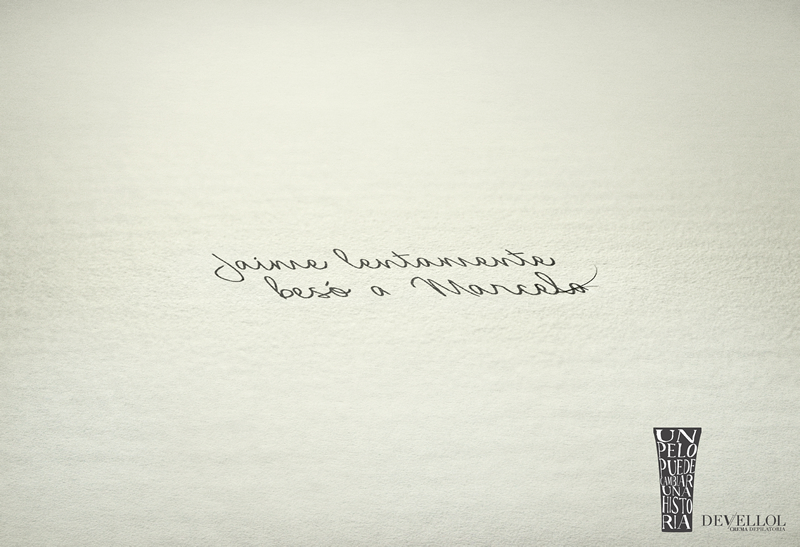 Jaime lentamente
besó a Marcelo
UN
PELO
PUEDE
CAMBIAR
UNA
HISTO
RIA
DEVELLOL
CREMA DEPILATORIA